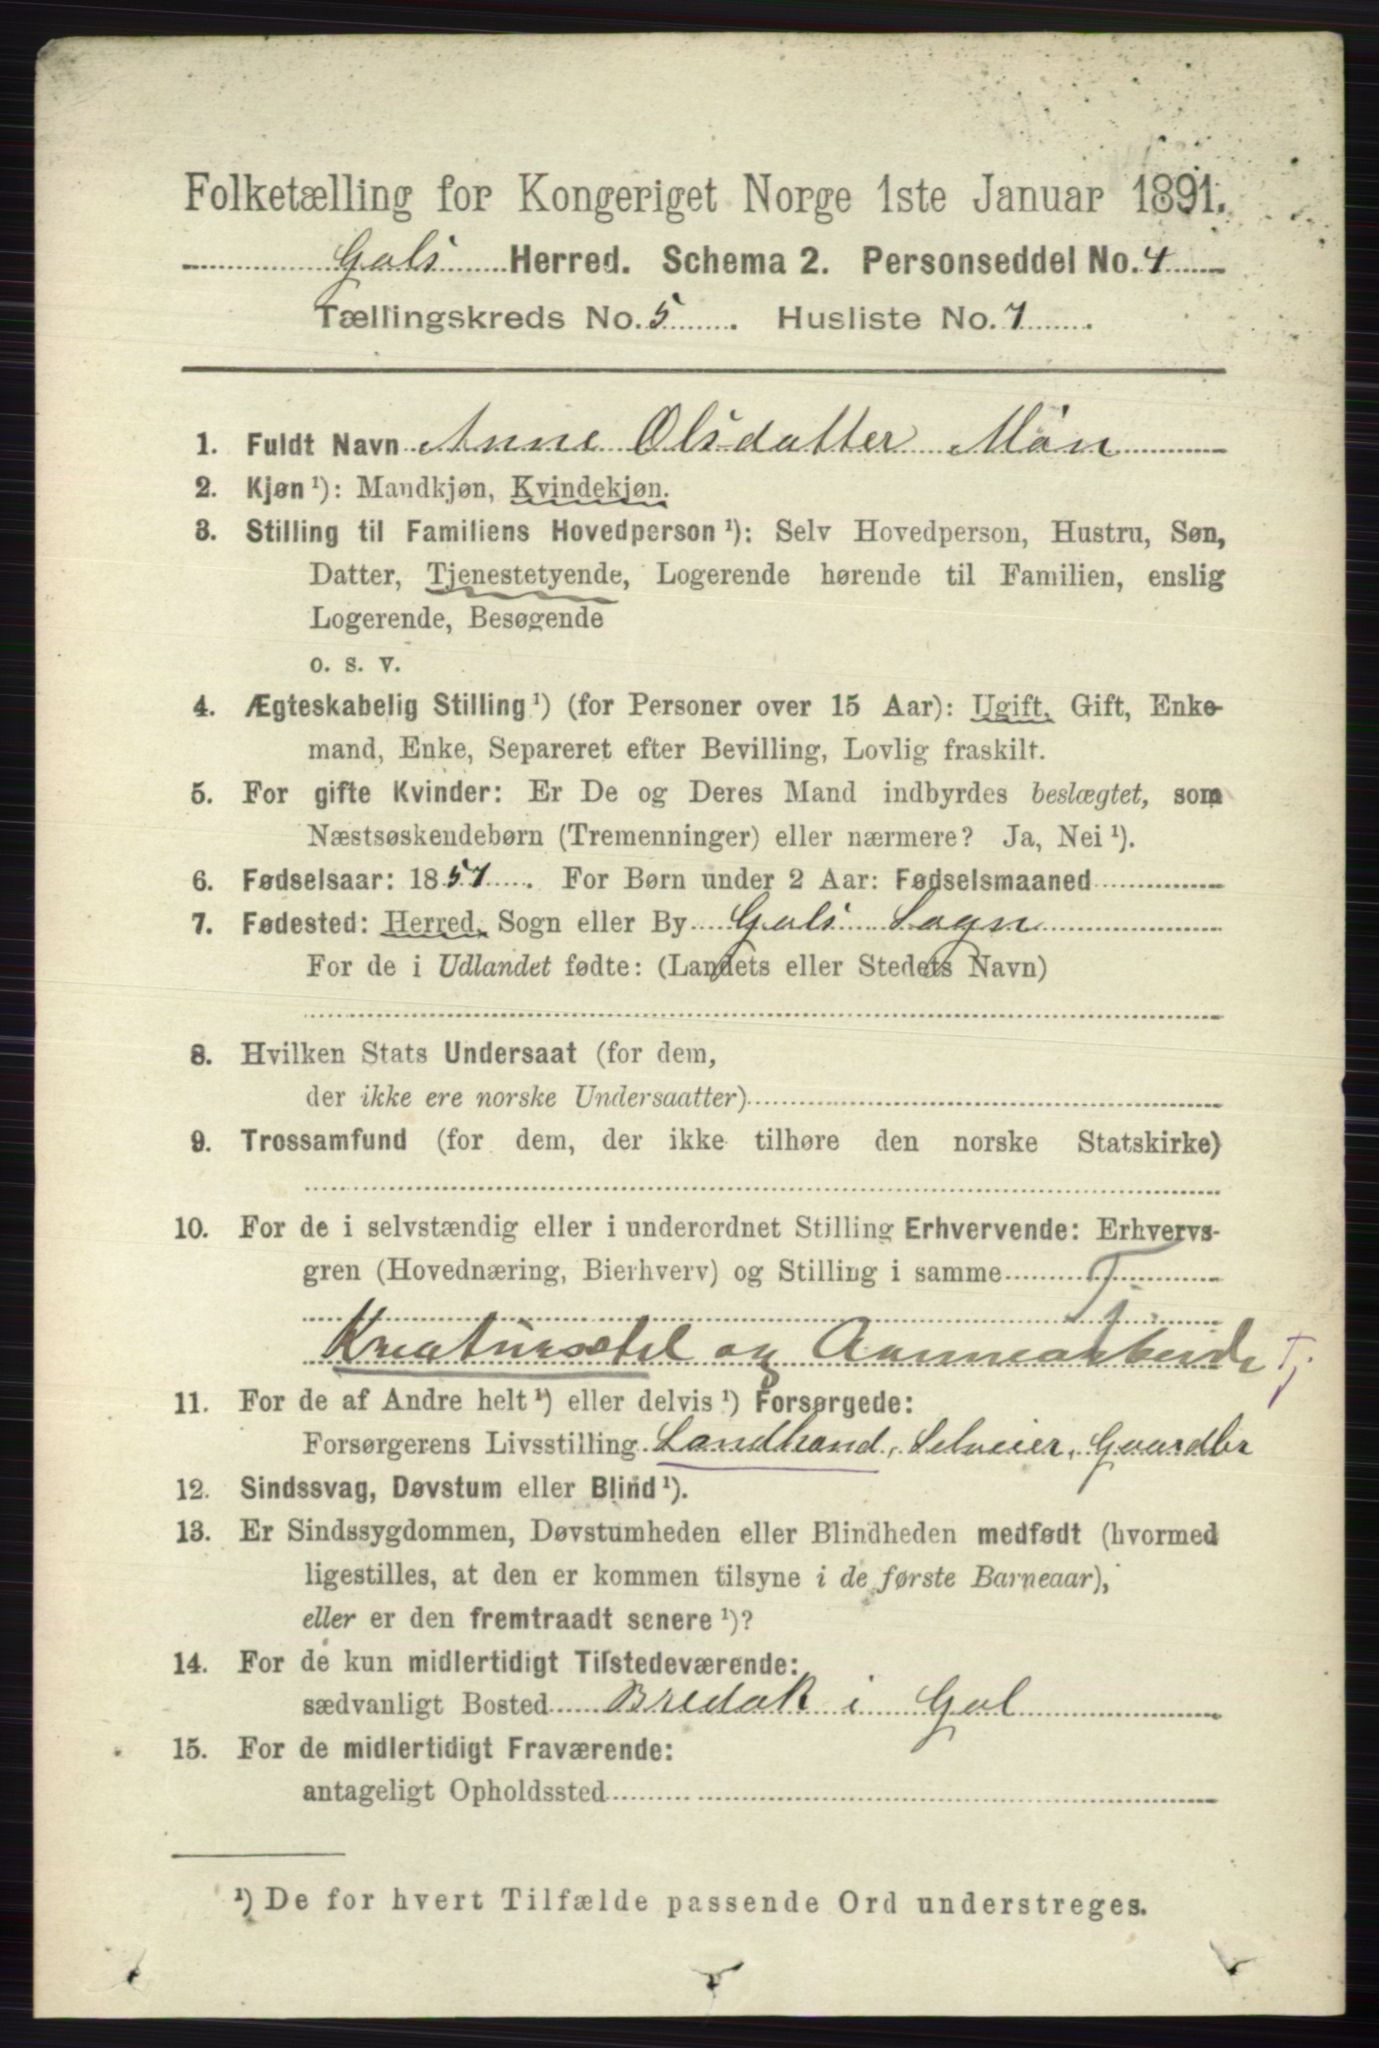 Folketælling for Kongeriget Norge 1ste Januar 1891.
Gols Herred. Schema 2. Personseddel No. 4
Tællingskreds No. 5. Husliste No. 7.
1. Fuldt Navn Anne Olsdatter Møn
2. Kjøn ¹): Mandkjøn, Kvindekjøn.
3. Stilling til Familiens Hovedperson ¹): Selv Hovedperson, Hustru, Søn,
Datter, Tjenestetyende, Logerende hørende til Familien, enslig
Logerende, Besøgende
o. s. v.
4. Ægteskabelig Stilling ¹) (for Personer over 15 Aar): Ugift, Gift, Enke-
mand, Enke, Separeret efter Bevilling, Lovlig fraskilt.
5. For gifte Kvinder: Er De og Deres Mand indbyrdes beslægtet, som
Næstsøskendebørn (Tremenninger) eller nærmere? Ja, Nei ¹).
6. Fødselsaar: 1857. For Børn under 2 Aar: Fødselsmaaned
7. Fødested: Herred, Sogn eller By Gols Sogn
For de i Udlandet fødte: (Landets eller Stedets Navn)
8. Hvilken Stats Undersaat (for dem,
der ikke ere norske Undersaatter)
9. Trossamfund (for dem, der ikke tilhøre den norske Statskirke)
10. For de i selvstændig eller i underordnet Stilling Erhvervende: Erhvervs-
gren (Hovednæring, Bierhverv) og Stilling i samme Tj.
Kreatursstel og Aannearbeide Tj.
11. For de af Andre helt ¹) eller delvis ¹) Forsørgede:
Forsørgerens Livsstilling Landhand, Selveier, Gaardbr
12. Sindssvag, Døvstum eller Blind ¹).
13. Er Sindssygdommen, Døvstumheden eller Blindheden medfødt (hvormed
ligestilles, at den er kommen tilsyne i de første Barneaar),
eller er den fremtraadt senere ¹)?
14. For de kun midlertidigt Tilstedeværende:
sædvanligt Bosted Bredak i Gol
15. For de midlertidigt Fraværende:
antageligt Opholdssted
¹) De for hvert Tilfælde passende Ord understreges.